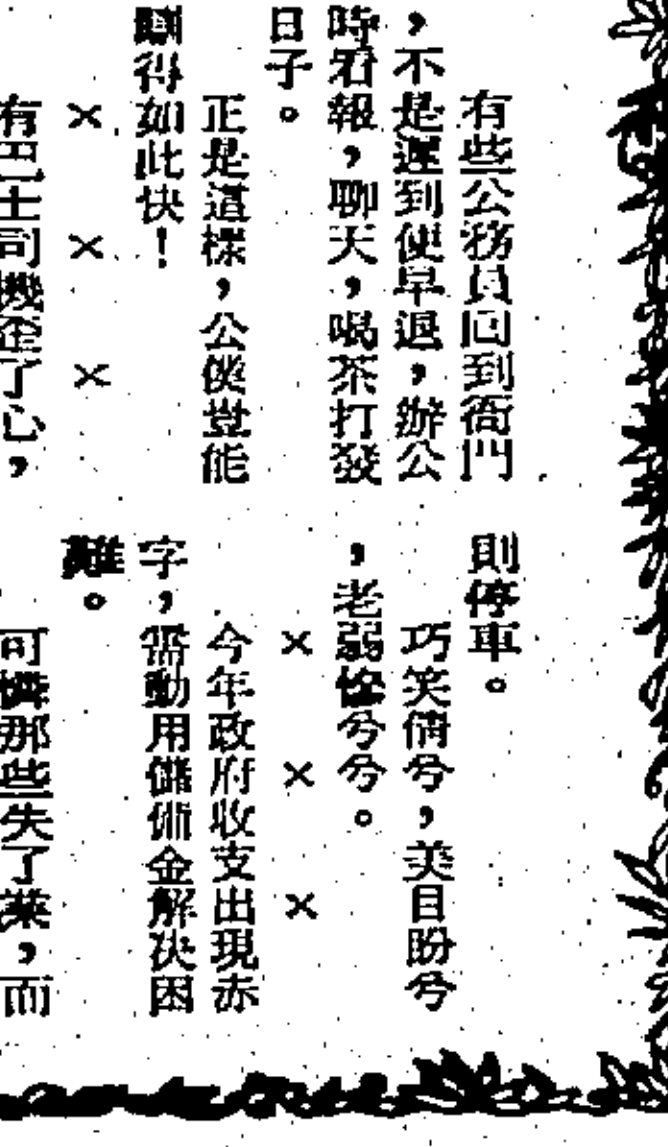 有些公務員回到衙門
，不是遲到便早退，辦公
時看報，聊天，喝茶打發
日子。
正是這樣，公僕豈能
得如此快！
× × ×
有巴士司機歪了心，
則停車。
巧笑倩兮，美目盼兮
，老弱慘兮兮。
× × ×
今年政府收支出現赤
字，需動用儲備金解決困
難。
可憐那些失了業，而